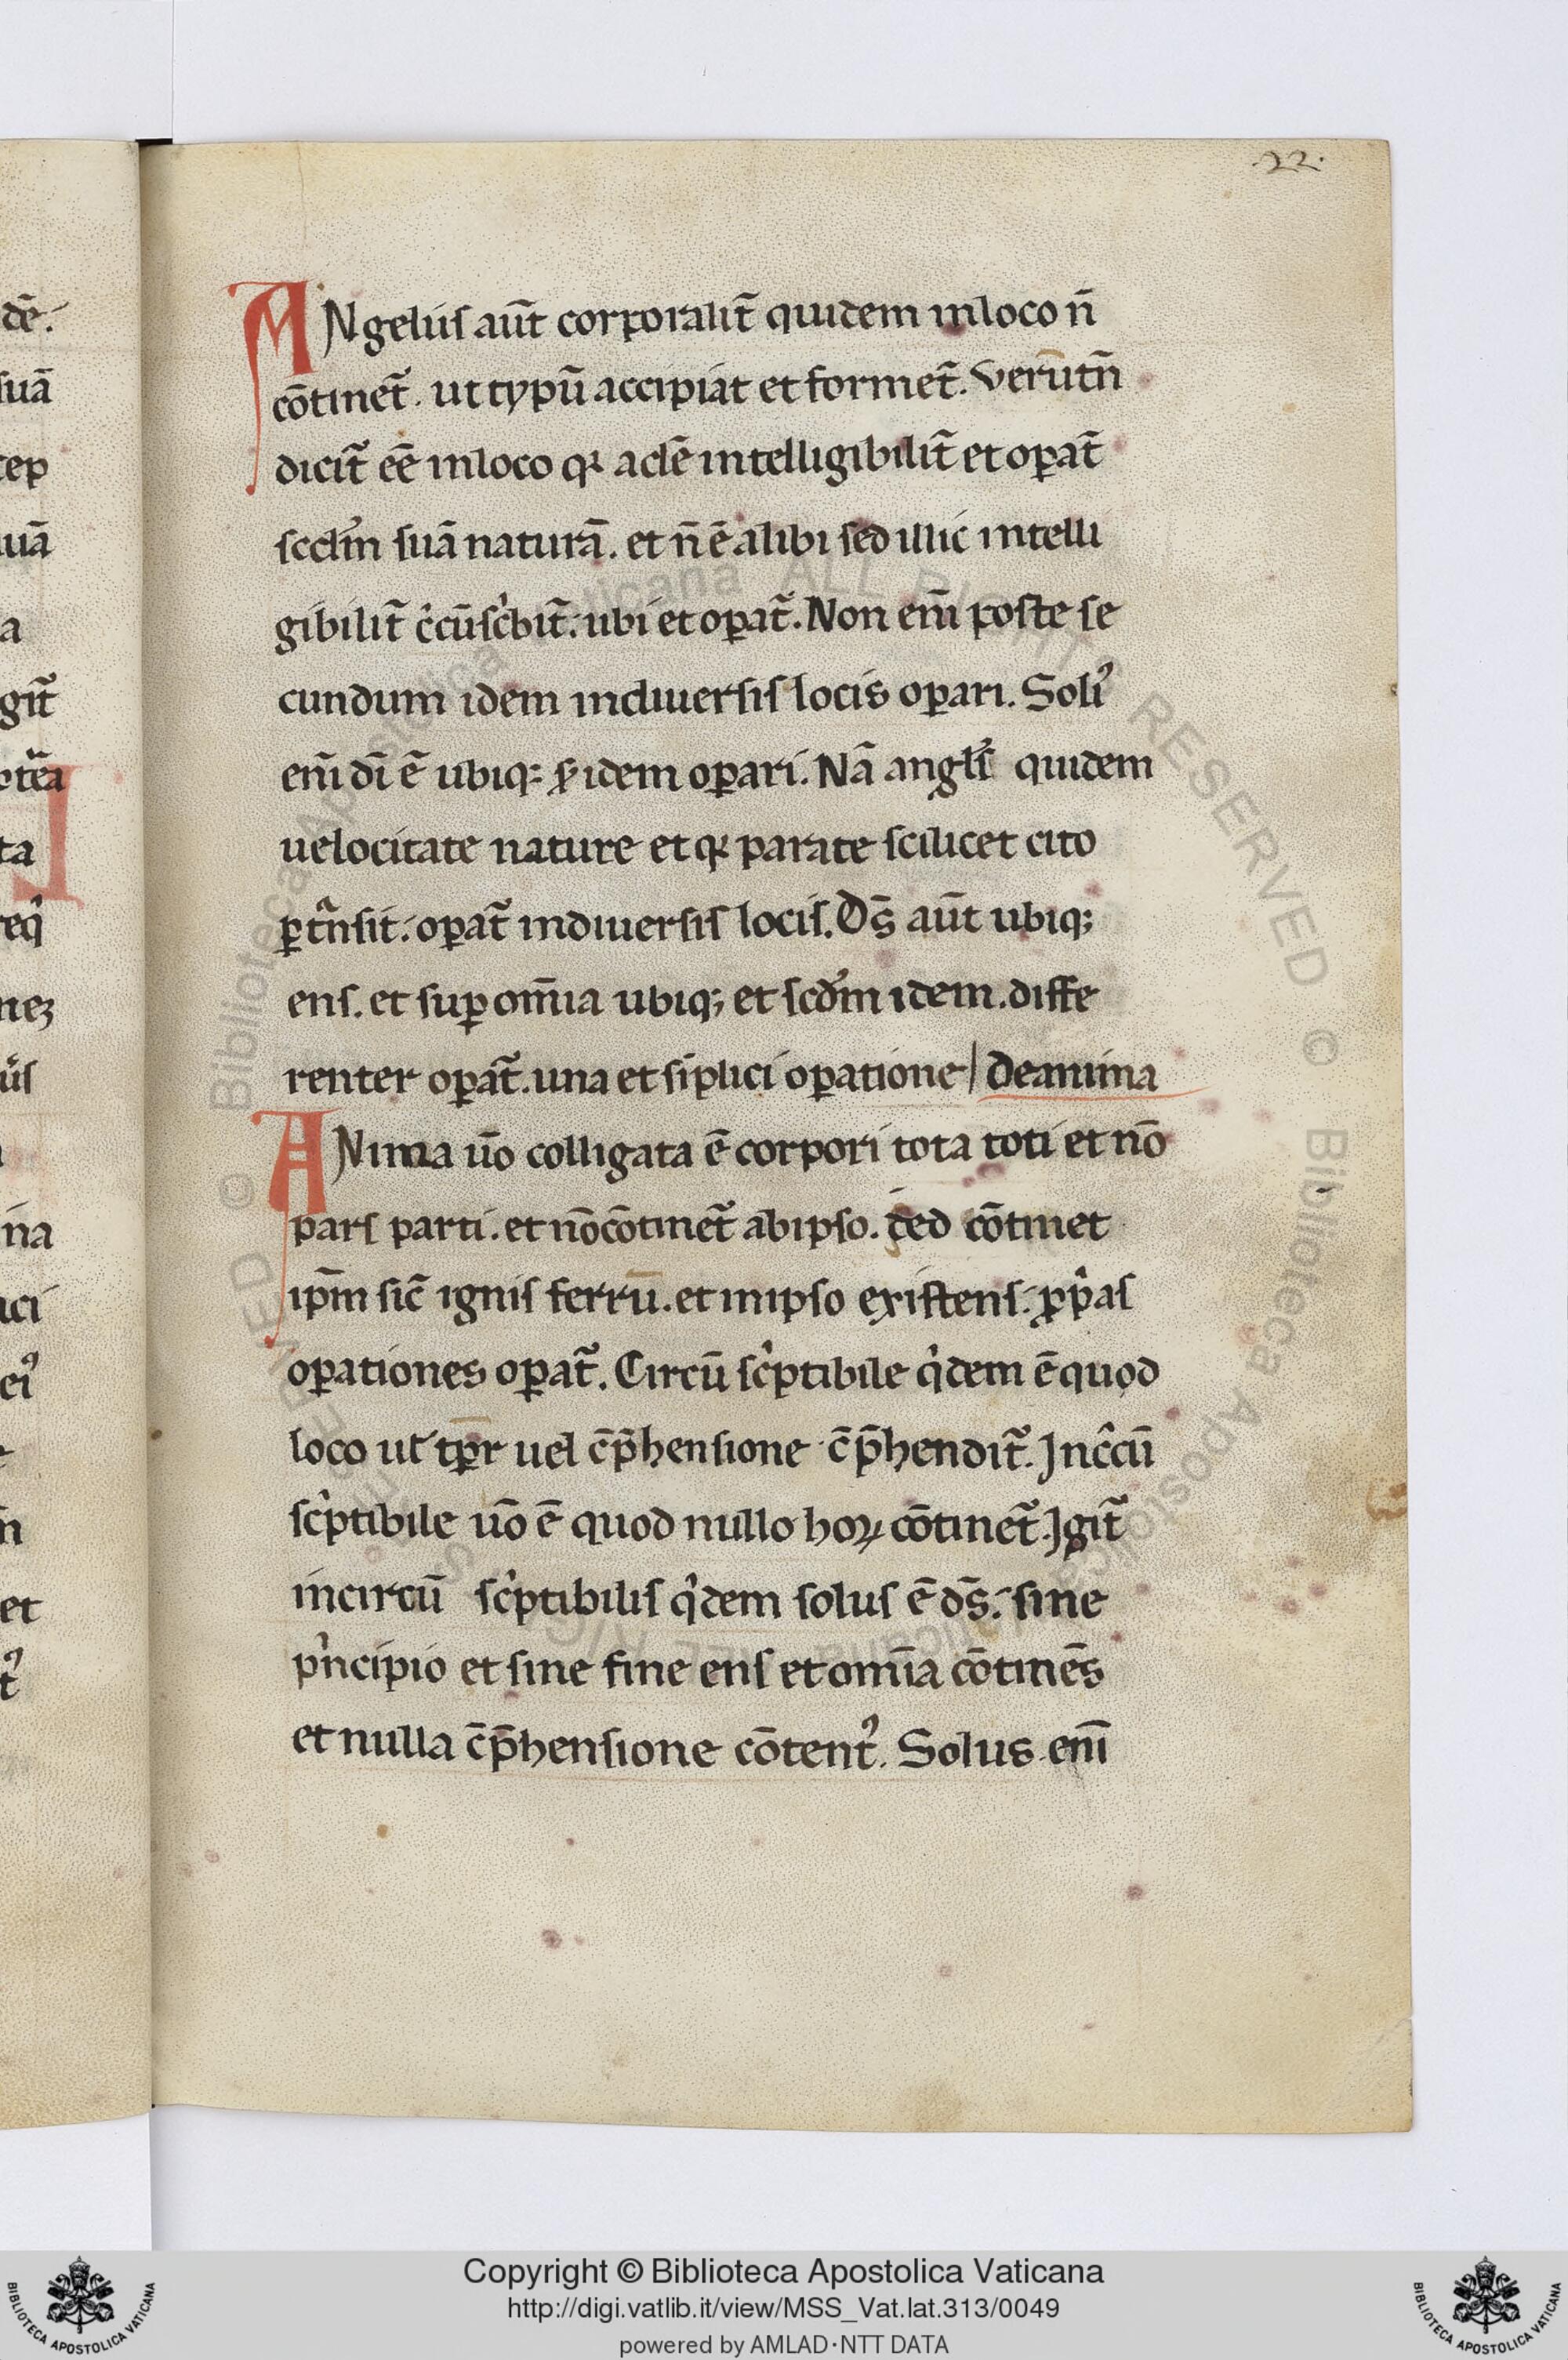 .22.
ANgelus aut̃ corporalit̃ quidem inloco n̄
cōtinet̃. ut typū accipiat et formet̃. Verūtn̄
dicit̃ eē inloco qꝛ adē intelligibilit̃ et oꝑat̃
scdm̄ suā naturā. et n̄ ē alibi sed illic intelli
gibilit̃ c̓cūsc̓bit̃. ubi et oꝑat̃. Non em̄ poste se
cundum idem indiuersis locis oꝑari. Soliꝰ
em̄ dī ē ubiqꝫ ꝓ idem oꝑari. Nā angl̓s quidem
uelocitate nature et qꝛ parate scilicet cito
ꝑtn̄sit. oꝑat̃ indiuersis locis. Ds̄ aut̃ ubiqꝫ
ens. et suꝑ om̄ia ubiqꝫ et scd̓m idem. diffe
renter oꝑat̃. una et sīplici oꝑatione | Deanima
ANima ūo colligata ē corpori tota toti et nō
pars parti. et nōcōtinet̃ abipso. sed cōtinet
ipm̄ sic̄ ignis ferrū. et inipso existens. ꝓp̓as
oꝑationes oꝑat̃. Circū sc̓ptibile q̓dem ē quod
loco ut tꝑr uel c̄p̄hensione c̄p̄hendit̃. Jnc̓cū
sc̓ptibile ūo ē quod nullo hoꝝ cōtinet̃. Jgit̃
incircū sc̓ptibilis q̓dem solus ē ds̄. sine
pn̓cipio et sine fine ens et om̄ia cōtinēs
et nulla c̄p̄hensione cōtentꝰ. Solus em̄
Copyright © Biblioteca Apostolica Vaticana
http://digi.vatlib.it/view/MSS_Vat.lat.313/0049
powered by AMLAD·NTT DATA
BIBLIOTECA APOSTOLICA VATICANA
BIBLIOTECA APOSTOLICA VATICANA